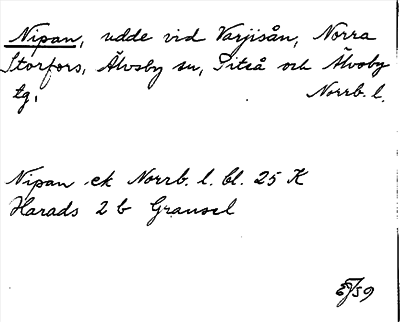 Nipan, udde vid Varjisån, Norra
Storfors, Älvsby sn, Piteå och Älvsby
tg. Norrb. l.
Nipan ek Norrb. l. bl. 25 K
Harads 2 b Gransel
59